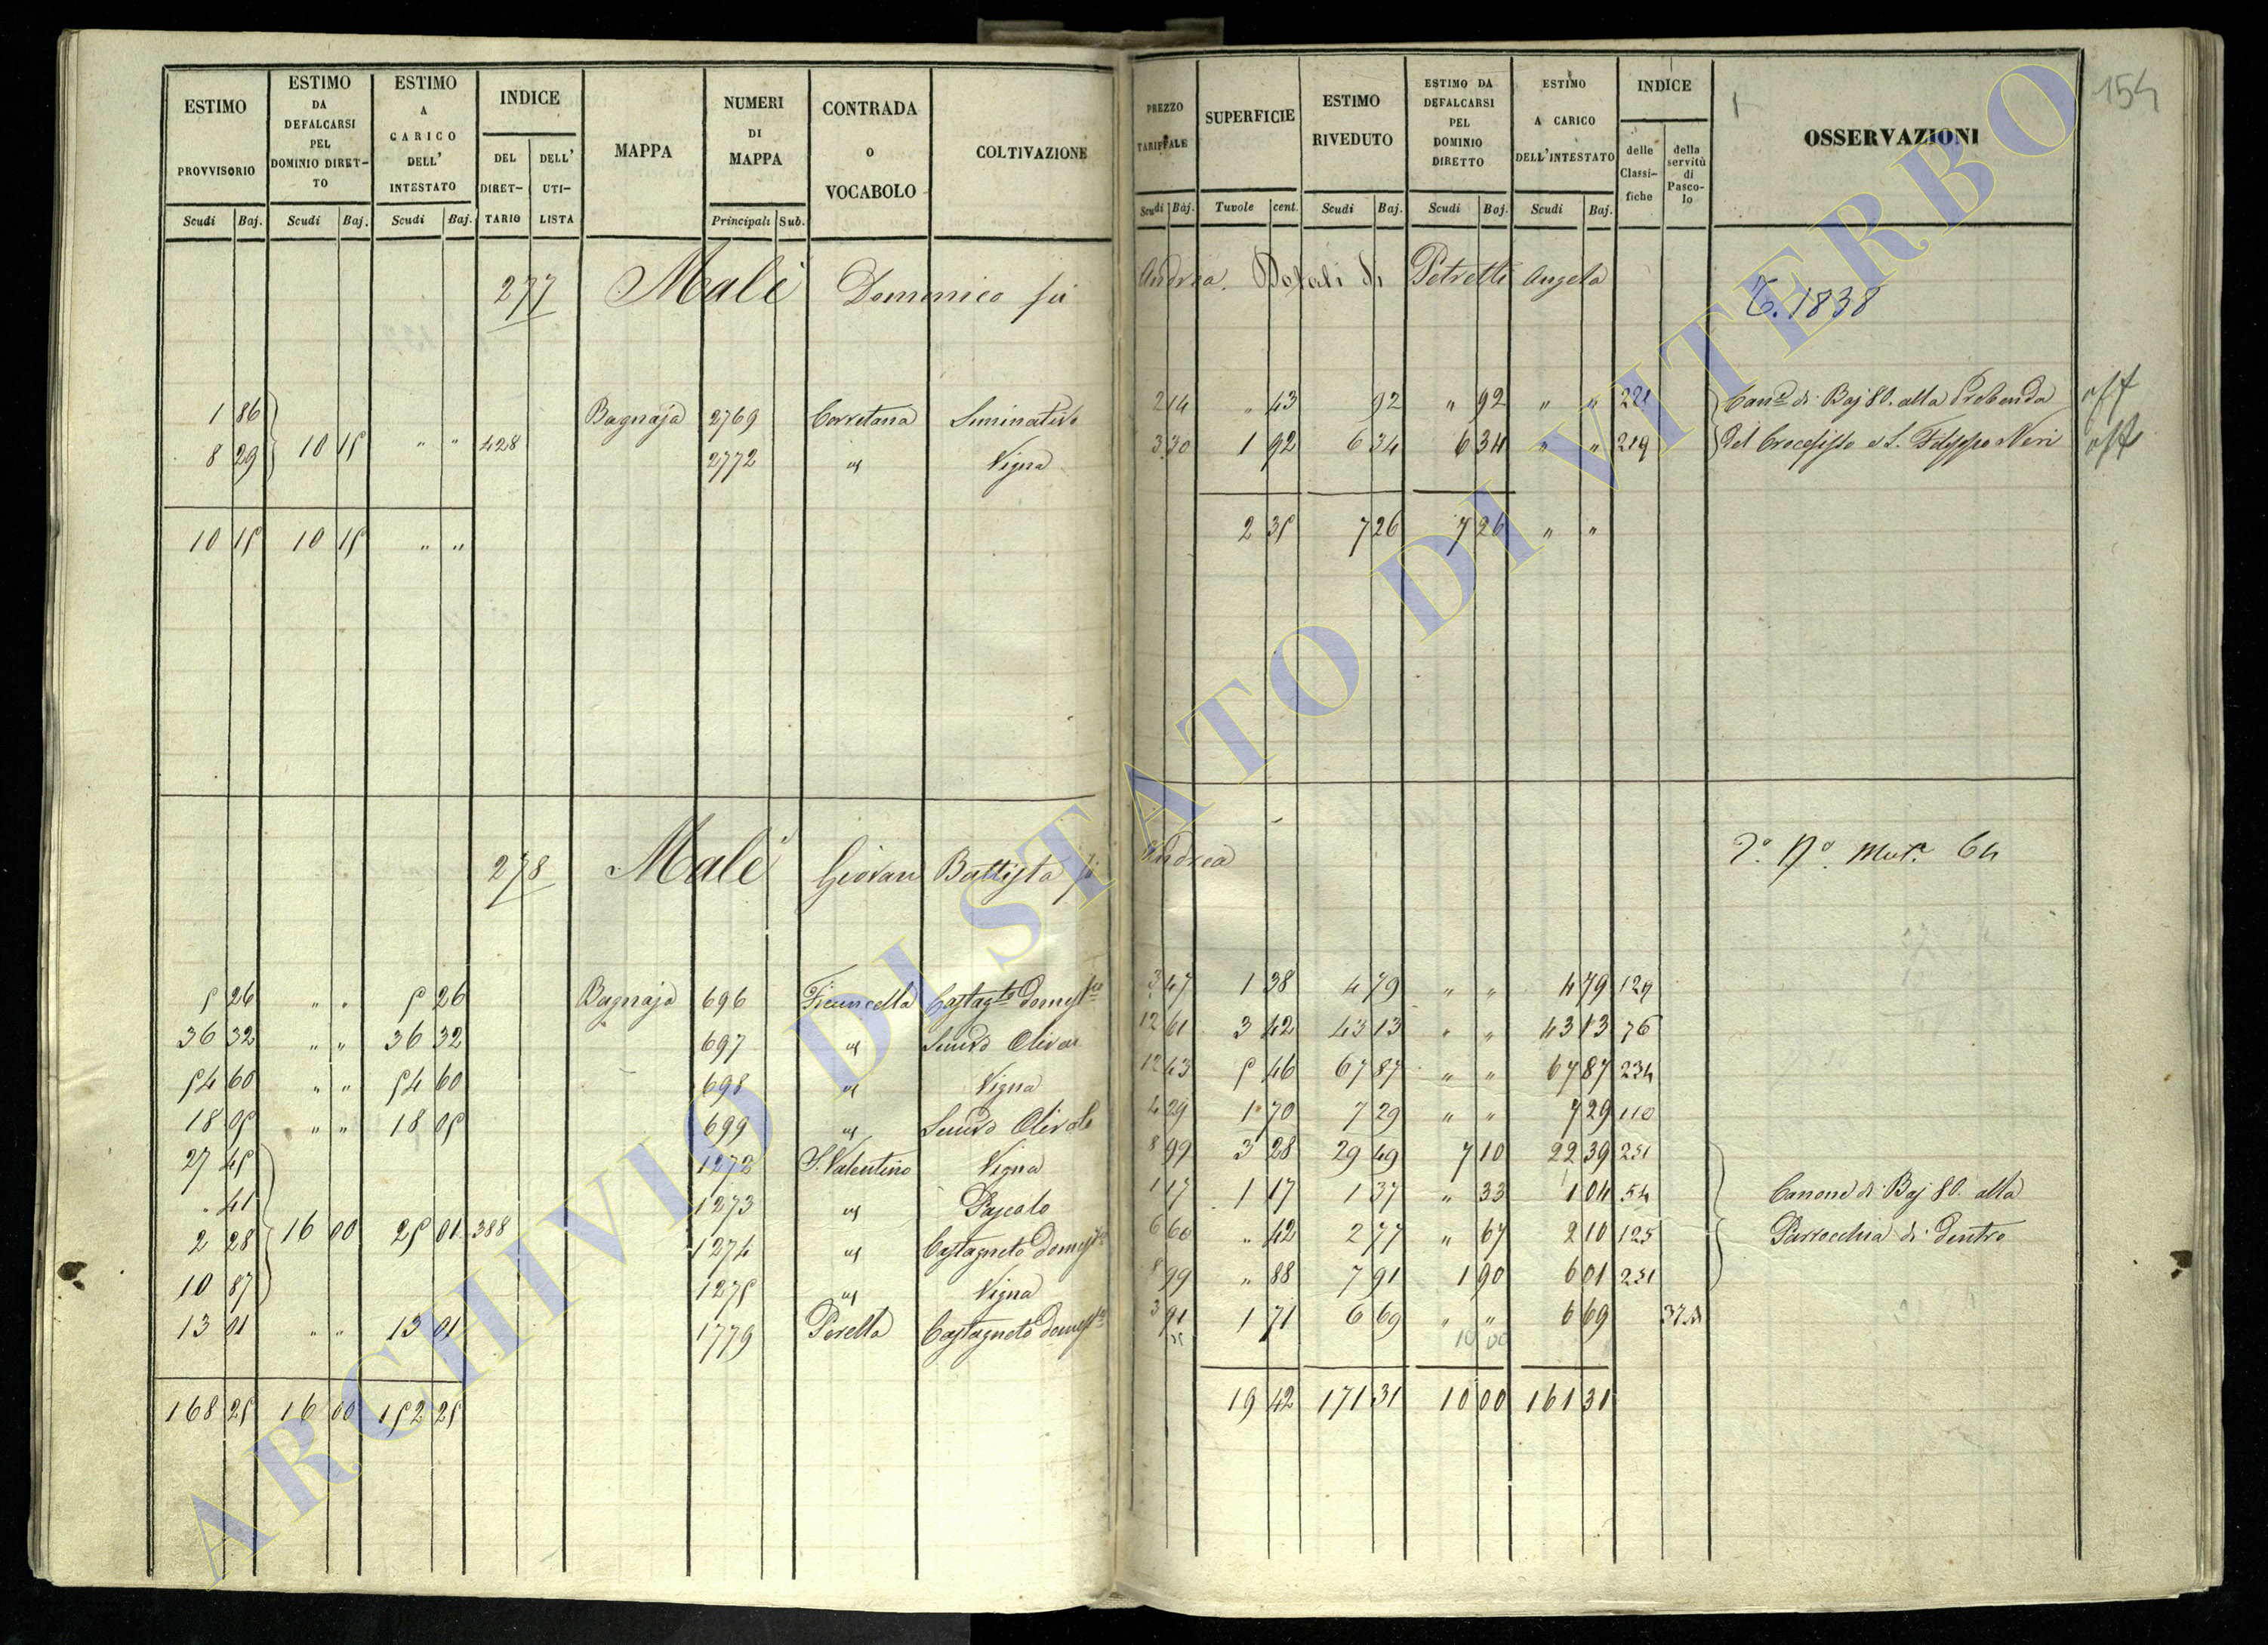 ESTIMO PROVVISORIO | ESTIMO DA DEFALCARSI PEL DOMINIO DIRETTO | ESTIMO A CARICO DELL' INTESTATO | INDICE DEL DIRETTARIO | DELL' UTILISTA | MAPPA | NUMERI DI MAPPA | CONTRADA O VOCABOLO | COLTIVAZIONE | PREZZO TARIFFALE | SUPERFICIE | ESTIMO RIVEDUTO | ESTIMO DA DEFALCARSI PEL DOMINIO DIRETTO | ESTIMO A CARICO DELL'INTESTATO | INDICE delle Classifiche | della servitù di Pascolo | OSSERVAZIONI | 154
Scudi Baj. | Scudi Baj. | Scudi Baj. | Principali Sub. | Scudi Baj. | Tavole cent. | Scudi Baj. | Scudi Baj. | Scudi Baj.
277 Malè Domenico fù Andrea. Dotali di Petretti Angela
T. 1838
1 86 | Bagnaja | 2769 | Corretana | Seminativo | 2 14 | " 43 | 92 | " 92 | " " | 221 | Can.e di Baj 80. alla Prebenda | aff
8 29 | 10 15 | " " | 428 | 2772 | id | Vigna | 3 30 | 1 92 | 6 34 | 6 34 | " " | 219 | del Crocefisso e S. Filippo Neri | aff
10 15 | 10 15 | " " | 2 35 | 7 26 | 7 26 | " "
278 Malè Giovan Battista fù Andrea
N.o Mut.a 64
5 26 | " " | 5 26 | Bagnaja | 696 | Ficuncella | Castag.to domest.co | 3 47 | 1 38 | 4 79 | " " | 4 79 | 124
36 32 | " " | 36 32 | 697 | id | Olivato | 12 61 | 3 42 | 43 13 | " " | 43 13 | 76
54 60 | " " | 54 60 | 698 | id | Vigna | 12 43 | 5 46 | 67 87 | " " | 67 87 | 234
18 05 | " " | 18 05 | 699 | id | Olivato | 4 29 | 1 70 | 7 29 | " " | 7 29 | 110
27 45 | 1272 | S. Valentino | Vigna | 8 99 | 3 28 | 29 49 | 7 10 | 22 39 | 251
" 41 | 1273 | id | Pascolo | 1 17 | 1 17 | 1 37 | " 33 | 1 04 | 54 | Canone di Baj 80. alla
2 28 | 16 00 | 25 01 | 388 | 1274 | id | Castagneto domest.co | 6 60 | " 42 | 2 77 | " 67 | 2 10 | 125 | Parrocchia di dentro
10 87 | 1275 | id | Vigna | 8 99 | " 88 | 7 91 | 1 90 | 6 01 | 251
13 01 | " " | 13 01 | 1779 | Porella | Castagneto domest.co | 3 91 | 1 71 | 6 69 | " " | 6 69
10 00
168 25 | 16 00 | 152 25 | 19 42 | 171 31 | 10 00 | 161 31
ARCHIVIO DI STATO DI VITERBO